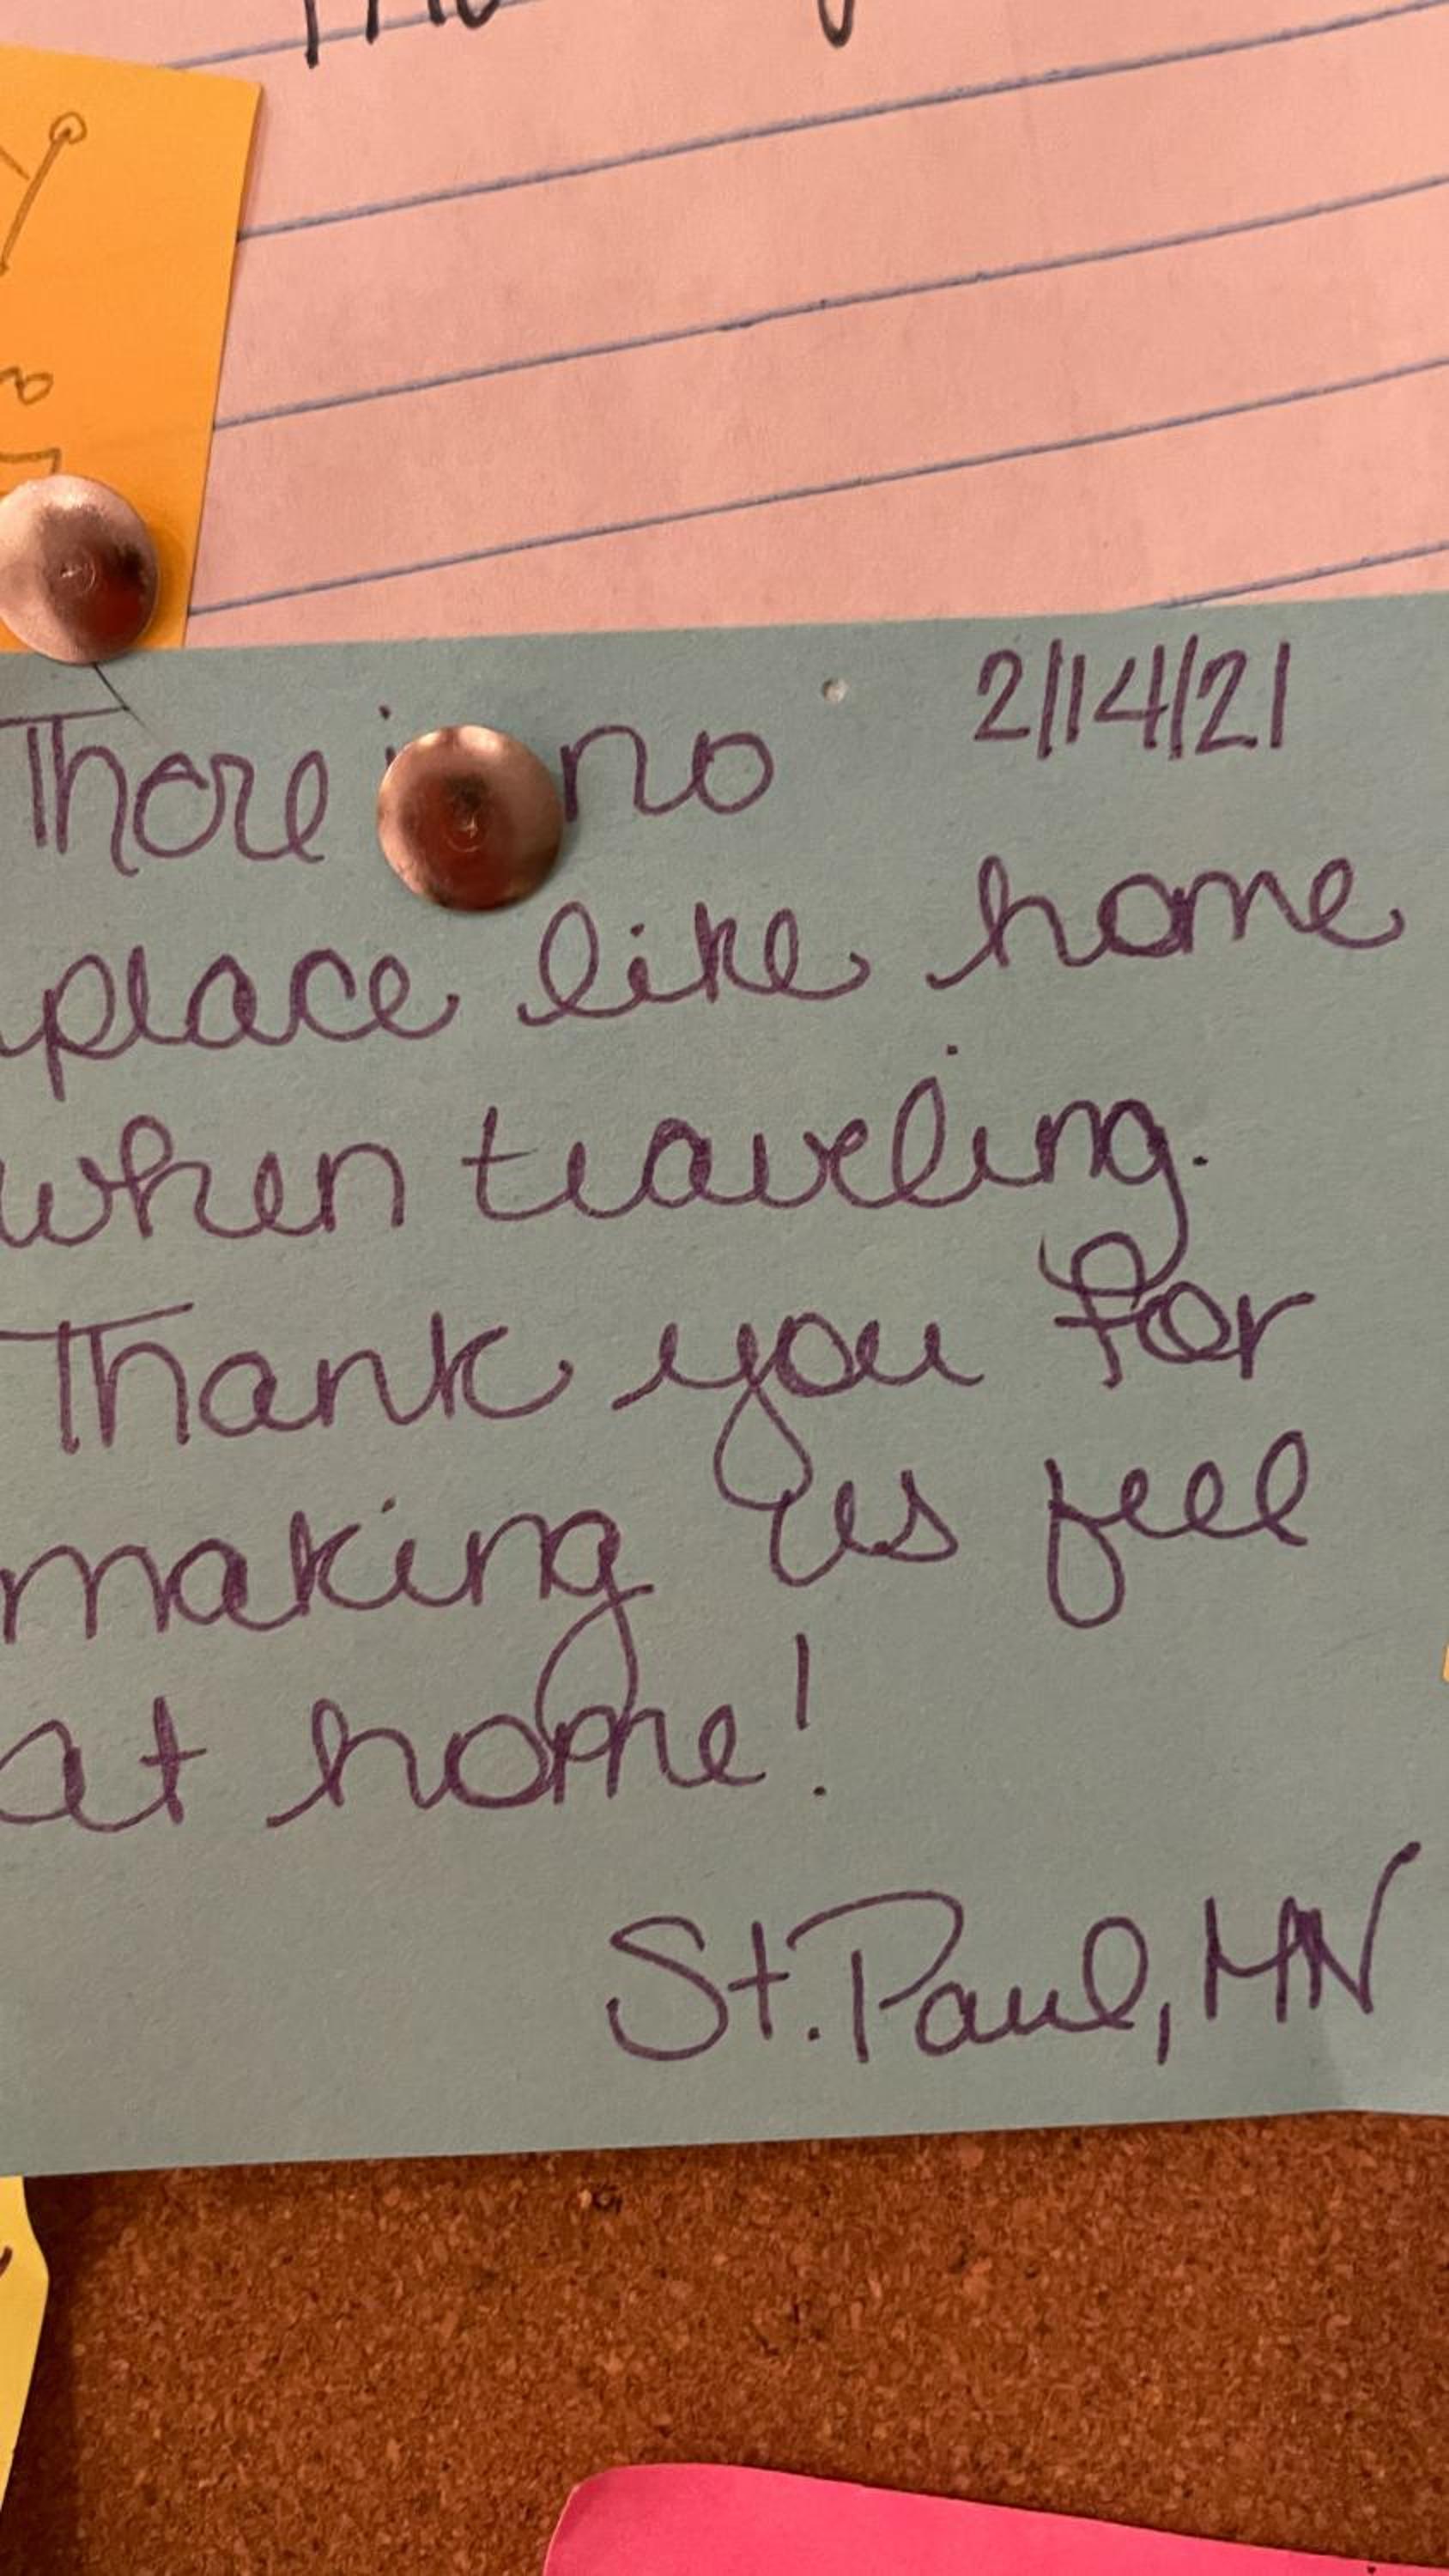 2/14/21
There no
place like home
when traveling.
Thank you for
making us feel
at home!
St. Paul, MN